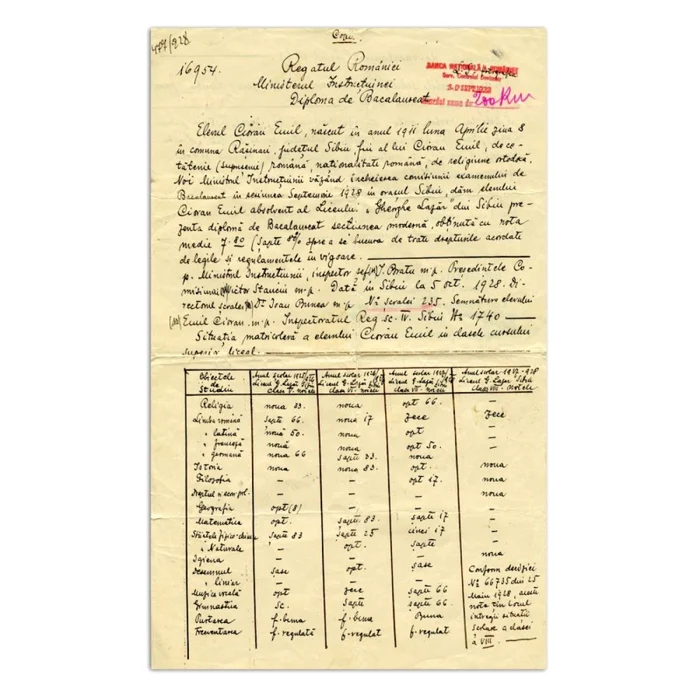 477/928
Copie
16954.
Regatul României
Ministerul Instrucțiunei
Diploma de Bacalaureat
BANCA NAȚIONALĂ A ROMÂNIEI
200 Rm
Elevul Ciorău Emil, născut în anul 1911 luna Aprilie ziua 8
în comuna Rășinari, județul Sibiu, fiu al lui Ciorău Emil, de ce-
tățenie (supușenie) română, naționalitate română, de religiune ortodoxă.
Noi Ministrul Instrucțiunii văzând încheierea comisiunii examenului de
Bacalaureat în sesiunea Septemvrie 1928 în orașul Sibiu, dăm elevului
Ciorău Emil absolvent al Liceului „Gheorghe Lazăr" din Sibiu pre-
zenta diplomă de Bacalaureat secțiunea modernă, obținută cu nota
medie 7.80 (Șapte 80% spre a se bucura de toate drepturile acordate
de legile și regulamentele în vigoare.
p. Ministrul Instrucțiunii, inspector șef (ss) I. Bratu m.p. Președintele Co-
misiunii (ss) Victor Stanciu m.p. Dată în Sibiu la 5 Oct. 1928. Di-
rectorul școalei (ss) Dr Ioan Bunea m.p. No școalei 235. Semnătura elevului
(ss) Emil Ciorau. m.p. Inspectoratul Reg. sc. IV. Sibiu No 1740
Situația matricoleră a elevului Ciorău Emil în clasele cursului
superior liceal.
Obiectele de Studiu | Anul școlar Liceul G. Lazăr clasa V. notele | Anul școlar Liceul G. Lazăr clasa VI. notele | Anul școlar Liceul G. Lazăr clasa VII. notele | Anul școlar 1927-928 Liceul G. Lazăr Sibiu clasa VIII. notele
Religia noua 83. noua opt 66. –
Limba română șapte 66. noua 17 zece zece
„ latină nouă 50. – opt –
„ franceză nouă – opt 50. –
„ germană noua 66 șapte 33. noua –
Istoria noua noua 83. opt. noua
Filosofia – – opt 17. noua
Dreptul și econ. pol. – – – noua
Geografia opt (8) – – –
Matematica opt. șapte 83. șapte 17 –
Științele fizico-chimice șapte 83 șapte 25 cinci 17 –
„ Naturale – opt. șapte –
Igiena – – – noua
Desemnul șase opt –
„ liniar – – –
Muzica vocală opt zece șapte 66
Gimnastica Sc. șapte șapte 66.
Purtarea f. buna f. buna Buna
Frecventarea f. regulată f. regulat f. regulat
Conform deciziei
No 66735 din 25
Maiu 1928, aceste
note țin locul
întregii situații
școlare a clasei
a VIII.